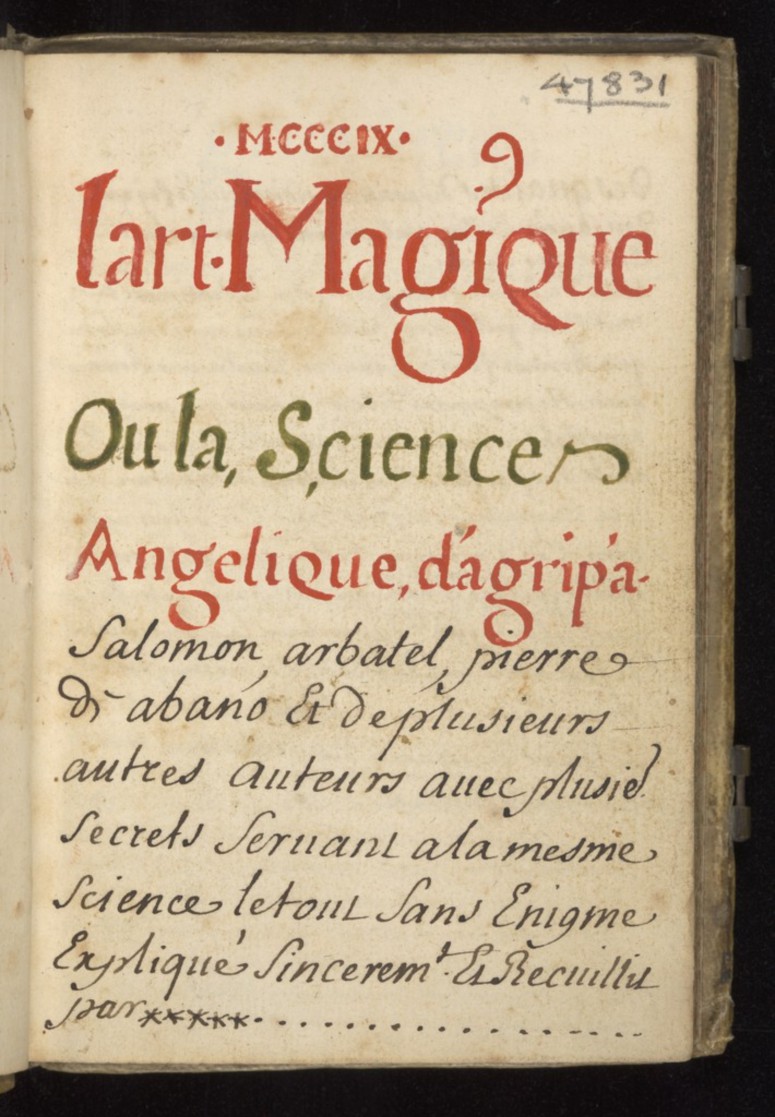 47831
·MCCCIX·
lart·Magique
Ou la, Science
Angelique, d'agripa·
Salomon, arbatel, pierre
d' abano Et De plusieurs
autres auteurs auec plusie^rs
secrets seruant a la mesme
science le tout sans Enigme
Expliqué sincerem^t. Et Recuillit
par xxxxx..................